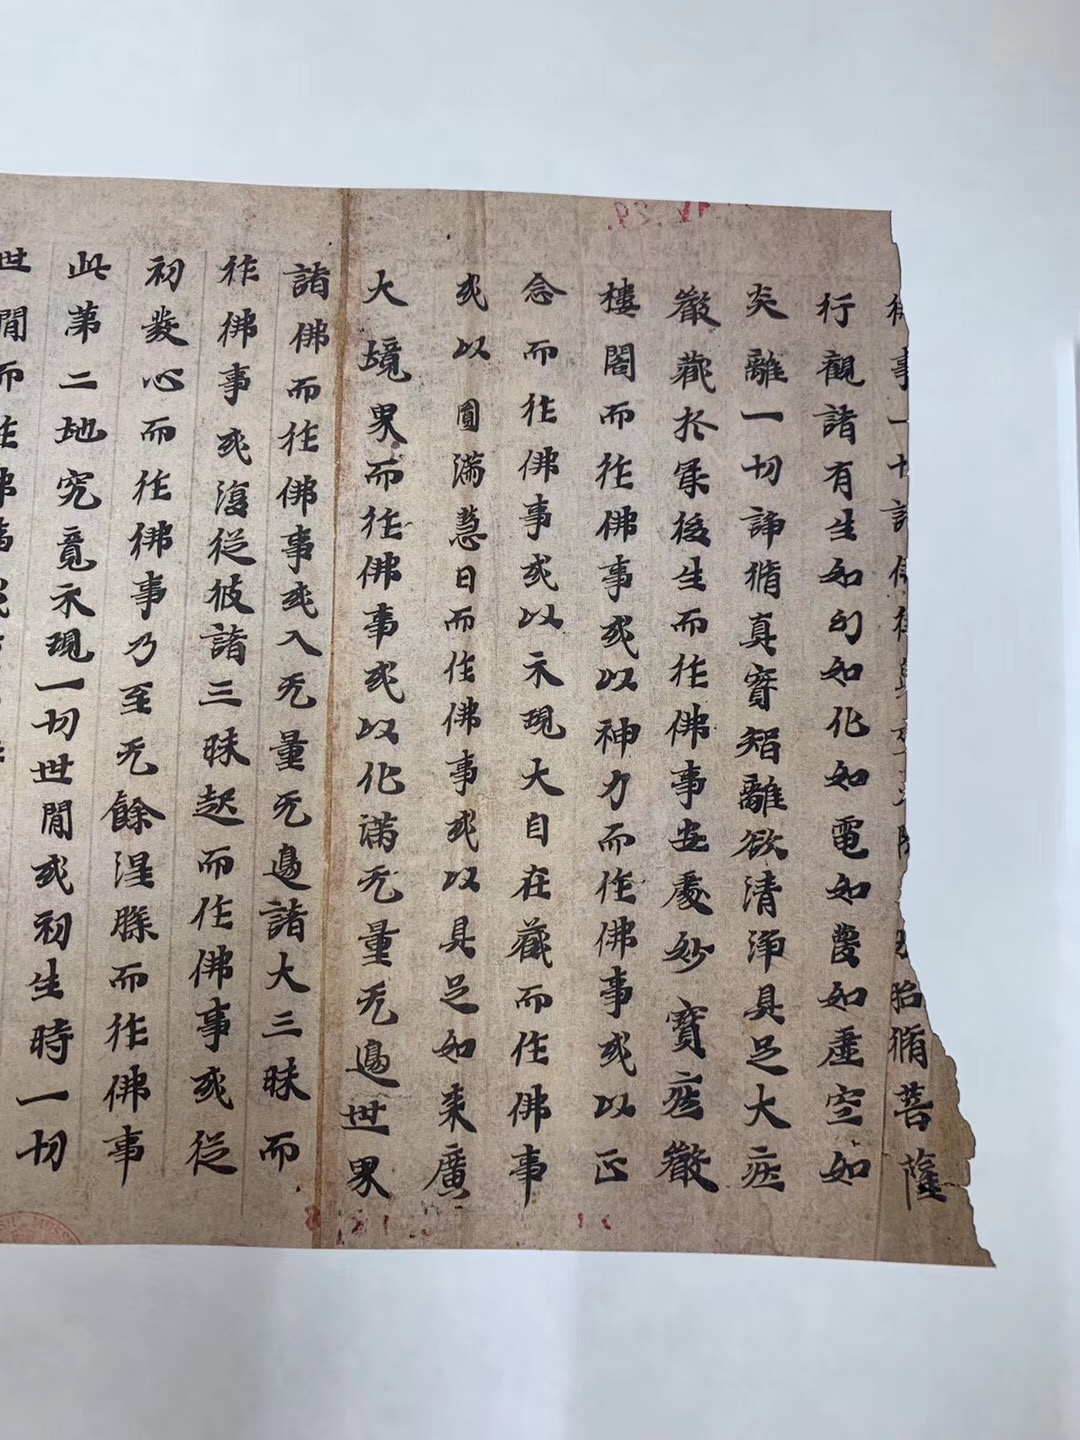 佛事一切諸佛從兜率天降神母胎脩菩薩
行觀諸有生如幻如化如電如響如虛空如
炎離一切諍脩真實智離欲清淨具足大莊
嚴藏於冣後生而作佛事安處妙寶莊嚴
樓閣而作佛事或以神力而作佛事或以正
念而作佛事或以示現大自在藏而作佛事
或以圓滿慧日而作佛事或以具足如來廣
大境界而作佛事或以化滿无量无邊世界
諸佛而作佛事或入无量无邊諸大三昧而
作佛事或復從彼諸三昧起而作佛事或從
初發心而作佛事乃至无餘涅槃而作佛事
此第二地究竟示現一切世間或初生時一切
世間而作佛事或